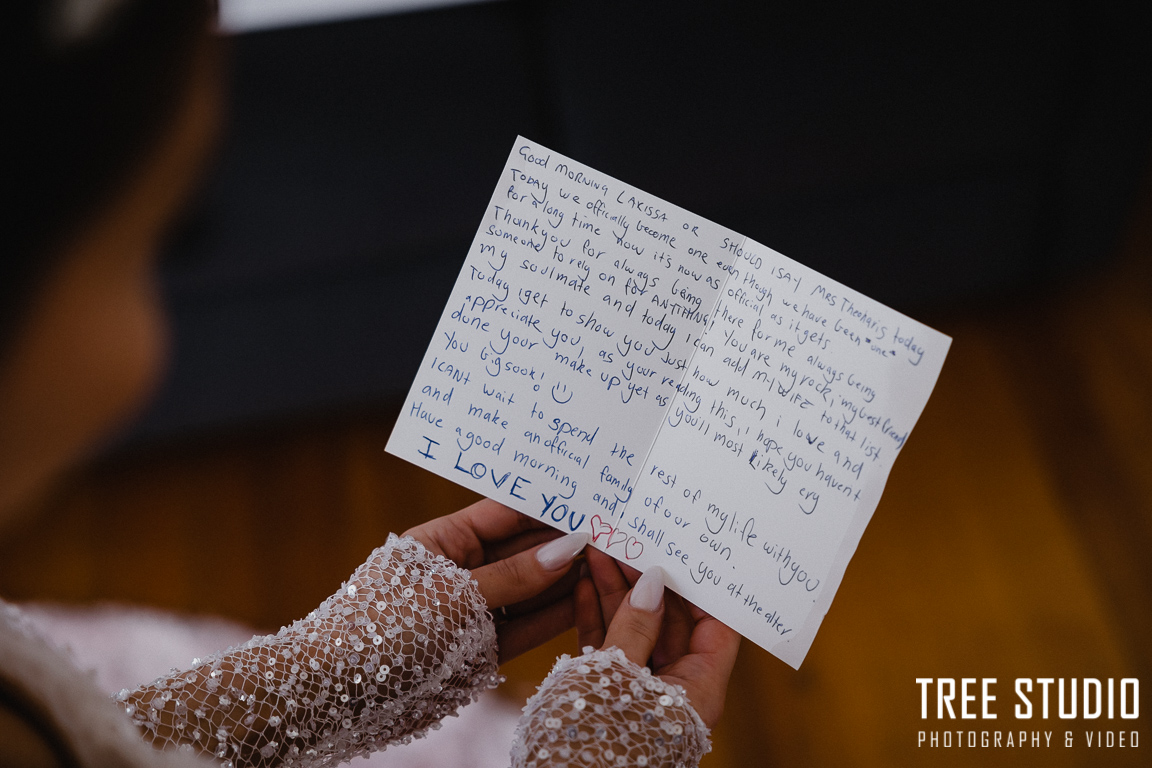 Good MORNING LARISSA OR SHOULD I SAY MRS Theoharis today
TODAY we officially become one even though we have been "one"
for a long time now it's now as official as it gets.
Thankyou for always being there for me always being
someone to rely on for ANYTHING! You are my rock, my best friend
my soulmate and today I can add MY WIFE to that list.
Today I get to show you just how much i love and
appreciate you, as your reading this, I hope you haven't
done your make up yet as you'll most likely cry
you big sook! :)
I CANT wait to spend the rest of my life with you.
and make an official family of our own.
Have a good morning and shall see you at the alter.
I LOVE YOU
TREE STUDIO
PHOTOGRAPHY & VIDEO